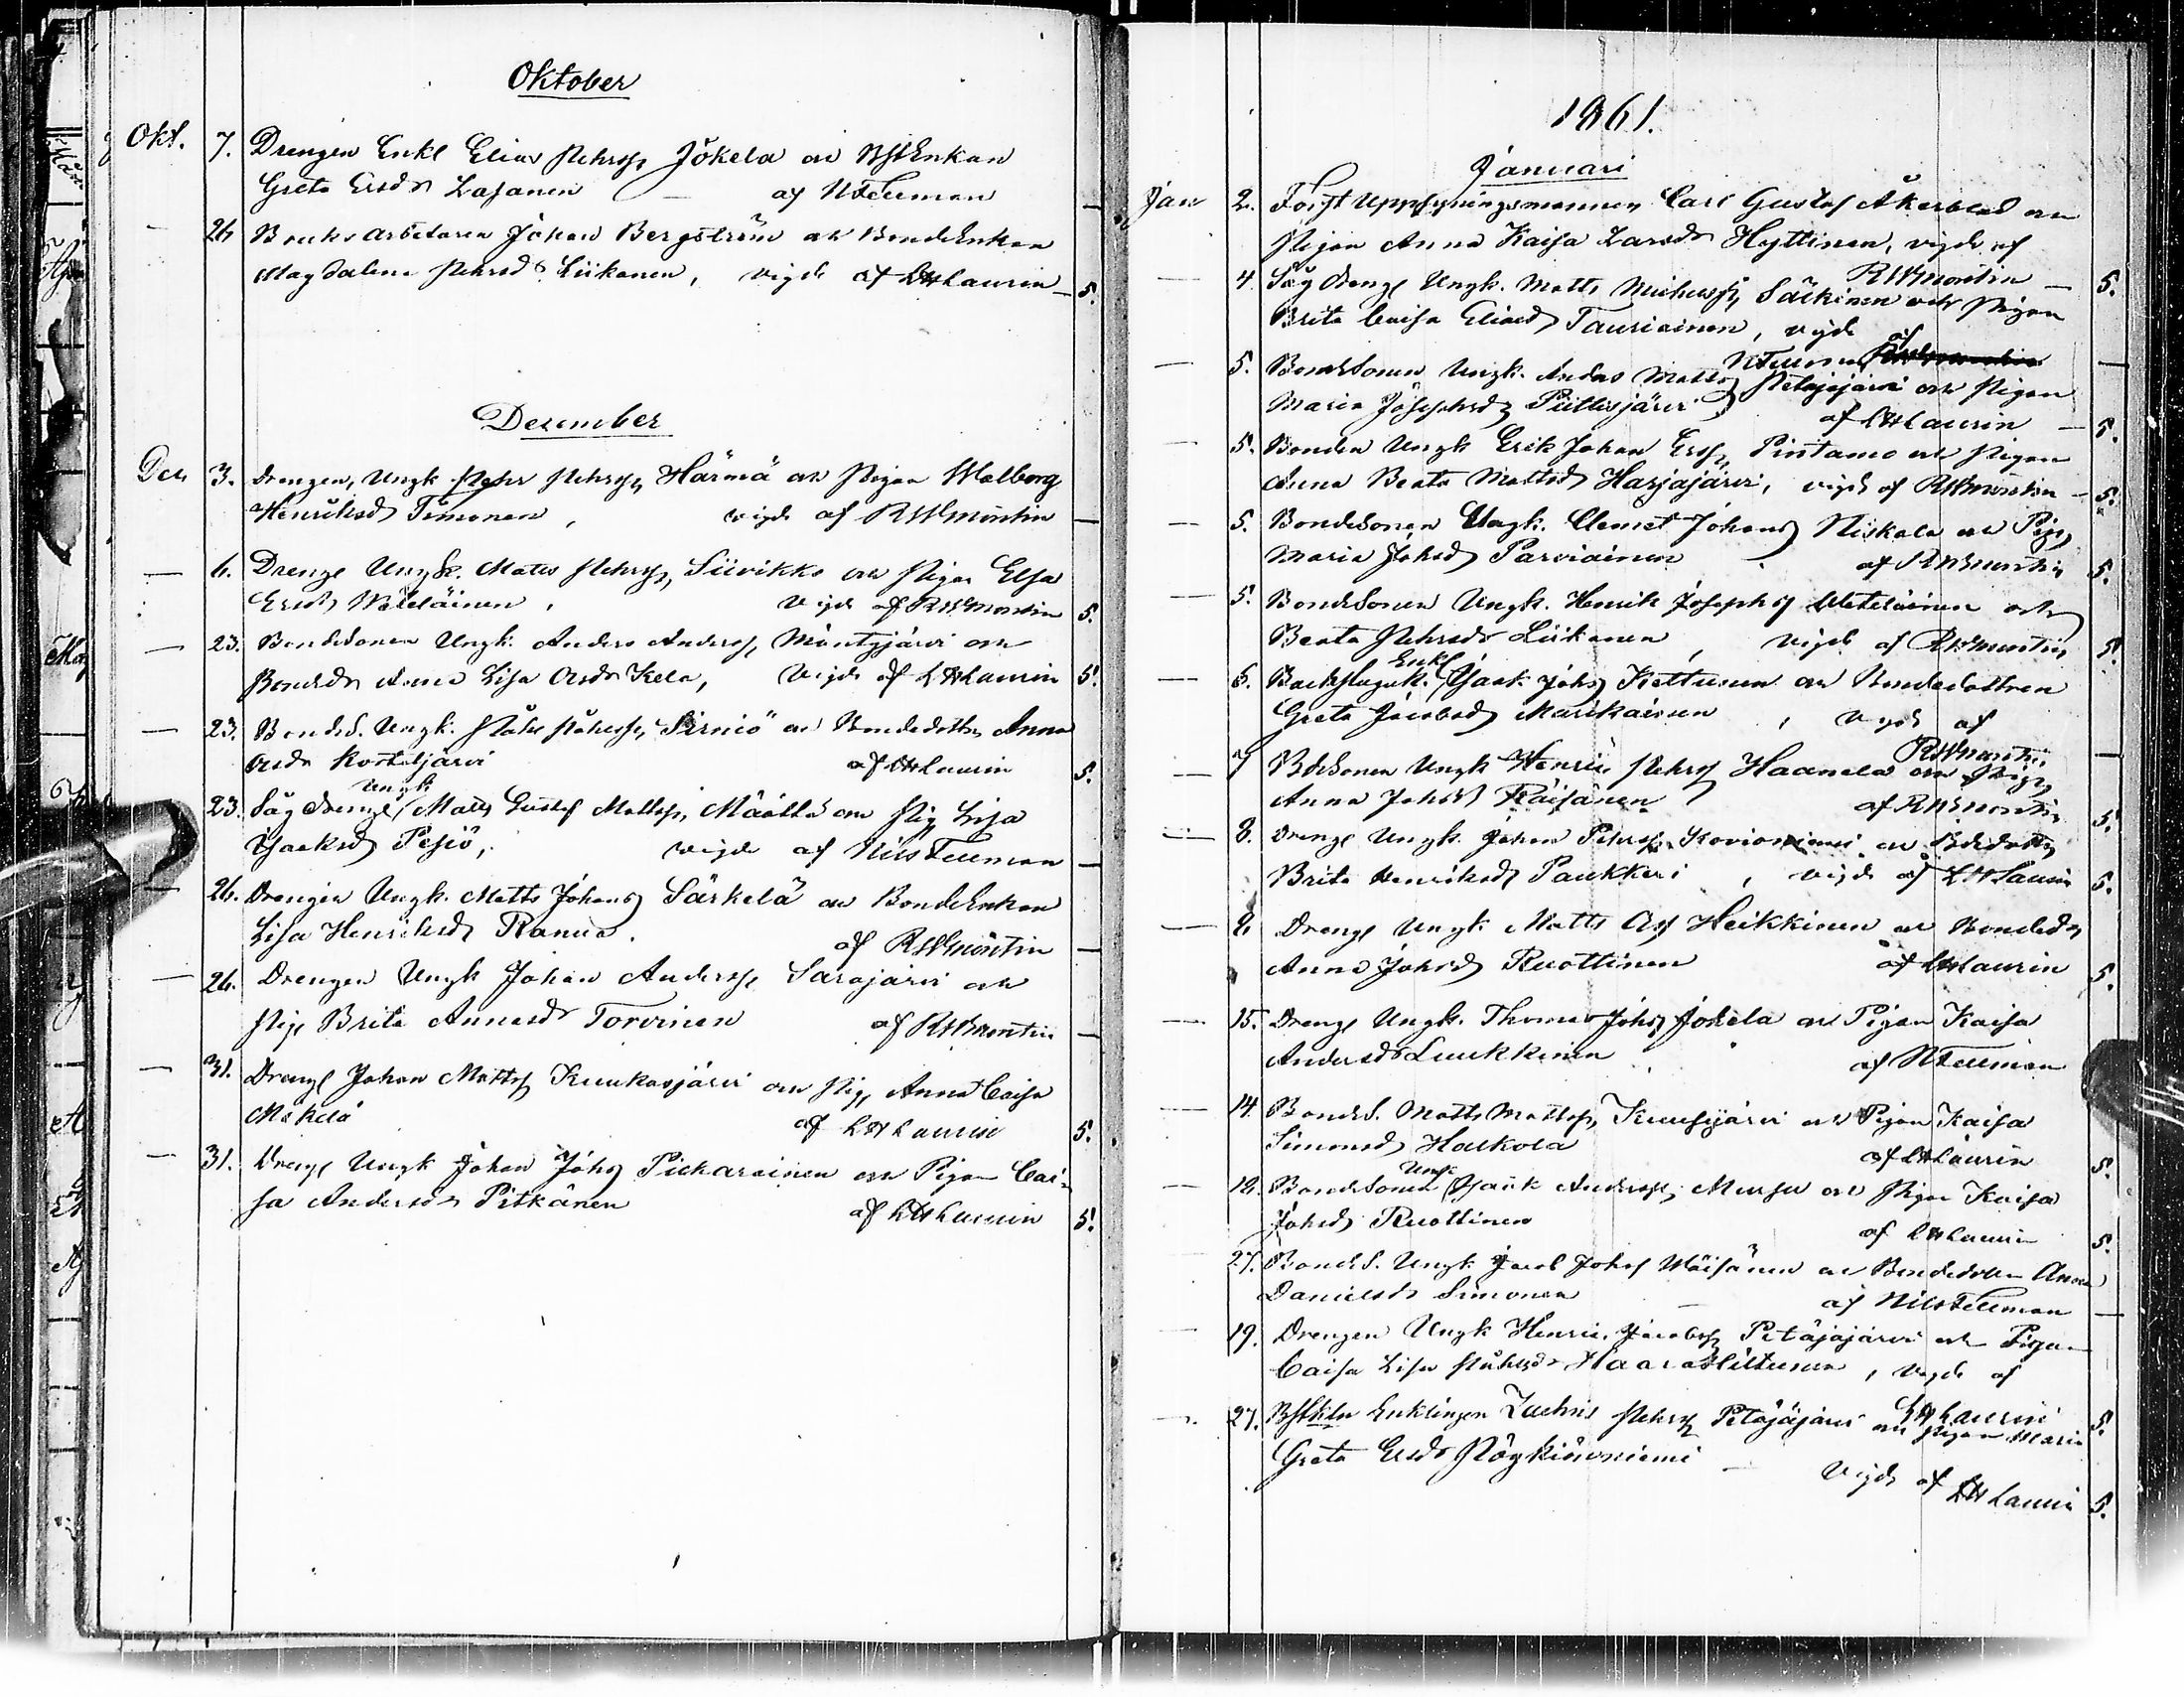 Oktober
Okt. 7. Drengen Enkl Elias Pehrss Jokela och BstEnkan
Greta Ersdr Lasanen af NFellman —
— 26 Bruksarbetaren Johan Bergström och BondeEnkan
Magdalena Pehrsdr Liikanen, vigde af LHLaurin 5.
December
Dec 3. Drengen, Ungk. Pehr Pehrss, Härmä och Pigan Walborg
Henriksdr Simonen, vigde af RWMontin —
— 6. Drenge Ungk. Matts Pehrss, Siivikko och Pigan Elsa
Ersdr Väteläinen, Vigde af RWMontin 5.
— 23. Bondesonen Ungk. Anders Anderss, Mäntyjärvi och
Bondedr Anna Lisa Olsdr Kela, Vigde af LHLaurin 5.
— 23. BondeS. Ungk. Påhl Påhlss, Sirniö och Bondedottr Anna
Olsdr Kortetjärvi af LHLaurin 5.
Ungk
23. Sågdrenge Matts Gustaf Mattss, Määttä och Pig Lisa
Isacksdr Pesiö, vigde af Nils Fellman —
— 26. Drengen Ungk. Matts Johans Särkelä och BondeEnkan
Lisa Henriksdr Ranua. af RWMontin —
— 26. Drengen Ungk Johan Anderss Sarajärvi och
Pig Brita Annasdr Torvinen af RWMontin —
— 31. Drenge Johan Mattss Kuukasjärvi och Pig, Anna Caisa
Mäkelä af LHLaurin 5.
— 31. Drenge Ungk Johan Johs Piekarainen och Pigan Cai-
sa Andersdr Pitkänen af LHLaurin 5.
1861.
Januari
Jan 2. Forstuppsyningsmannen Carl Gustaf Åkerblad och
Pigan Anna Kaisa Larsdr Hyttinen, vigde af
RWMontin — 5.
— 4. Sågdrenge Ungk. Matts Michelss, Särkinen och Pigan
Brita Caisa Eliaedr Tauriainen, vigde
af NFellman —
— 5. BondeSonen Ungk. Anders Matts Petäjäjärvi och Pigan
Maria Josephsdr Piittisjärvi af LHLaurin — 5.
— 5. Bonden Ungk Erik Johan Erss, Pintamo och Pigan
Anna Beata Mattsdr Harjajärvi, vigde af RWMontin — 5.
— 5. BondeSonen Ungk. Clemet Johans Niskala och Pig
Maria Johsdr Parviainen af RWMontin 5.
— 5. BondeSonen Ungk. Henrik Josephs Veteläinen och
Beata Pehrsdr Liikanen, vigde af RWMontin 5.
Enkl
— 6. Isaak Johs Kettunen och Bondedottren
Greta Jacobsdr Marikaisen, Vigde af
RWMontin —
— 7 BdeSonen Ungk Henric Pehrs Haanela och Pig
Anna Johsdr Räisänen af RWMontin 5.
— 8. Drenge Ungk. Johan Pehrss Kovioniemi och Bdedottr
Brita Henriksdr Paukkeri, vigde af LHLaurin 5.
— 8. Drenge Ungk Matts Heikkinen och Bondedr
Anna Johsdr Ruottinen af LHLaurin 5.
— 15. Drenge Ungk. Thomas Johs Jokela och Pigan Kaisa
Andersdr Luukkinen af NFellman
— 14. BondeS. Matts Mattss, Kuusijärvi och Pigan Kaisa
Simonsdr Halkola af LHLaurin 5.
Ungk
— 12. BondeSonen Isaak Anderss, Mursu och Pigan Kaisa
Johsdr Ruottinen af LHLaurin 5.
27. BondeS. Ungk Jacob Johs Väisänen och Bondedottr Anna
Danielsdr Simonen af NilsFellman —
— 19. Drengen Ungk Henric Jacobss Petäjäjärvi och Pigan
Caisa Lisa Påhlsdr Haarahiltunen, Vigde af
LHLaurin 5.
— 27. Enklingen Zachris Pehrss Petäjäjärvi och Pigan Maria
Greta Ersdr Vigde af LHLaurin 5.